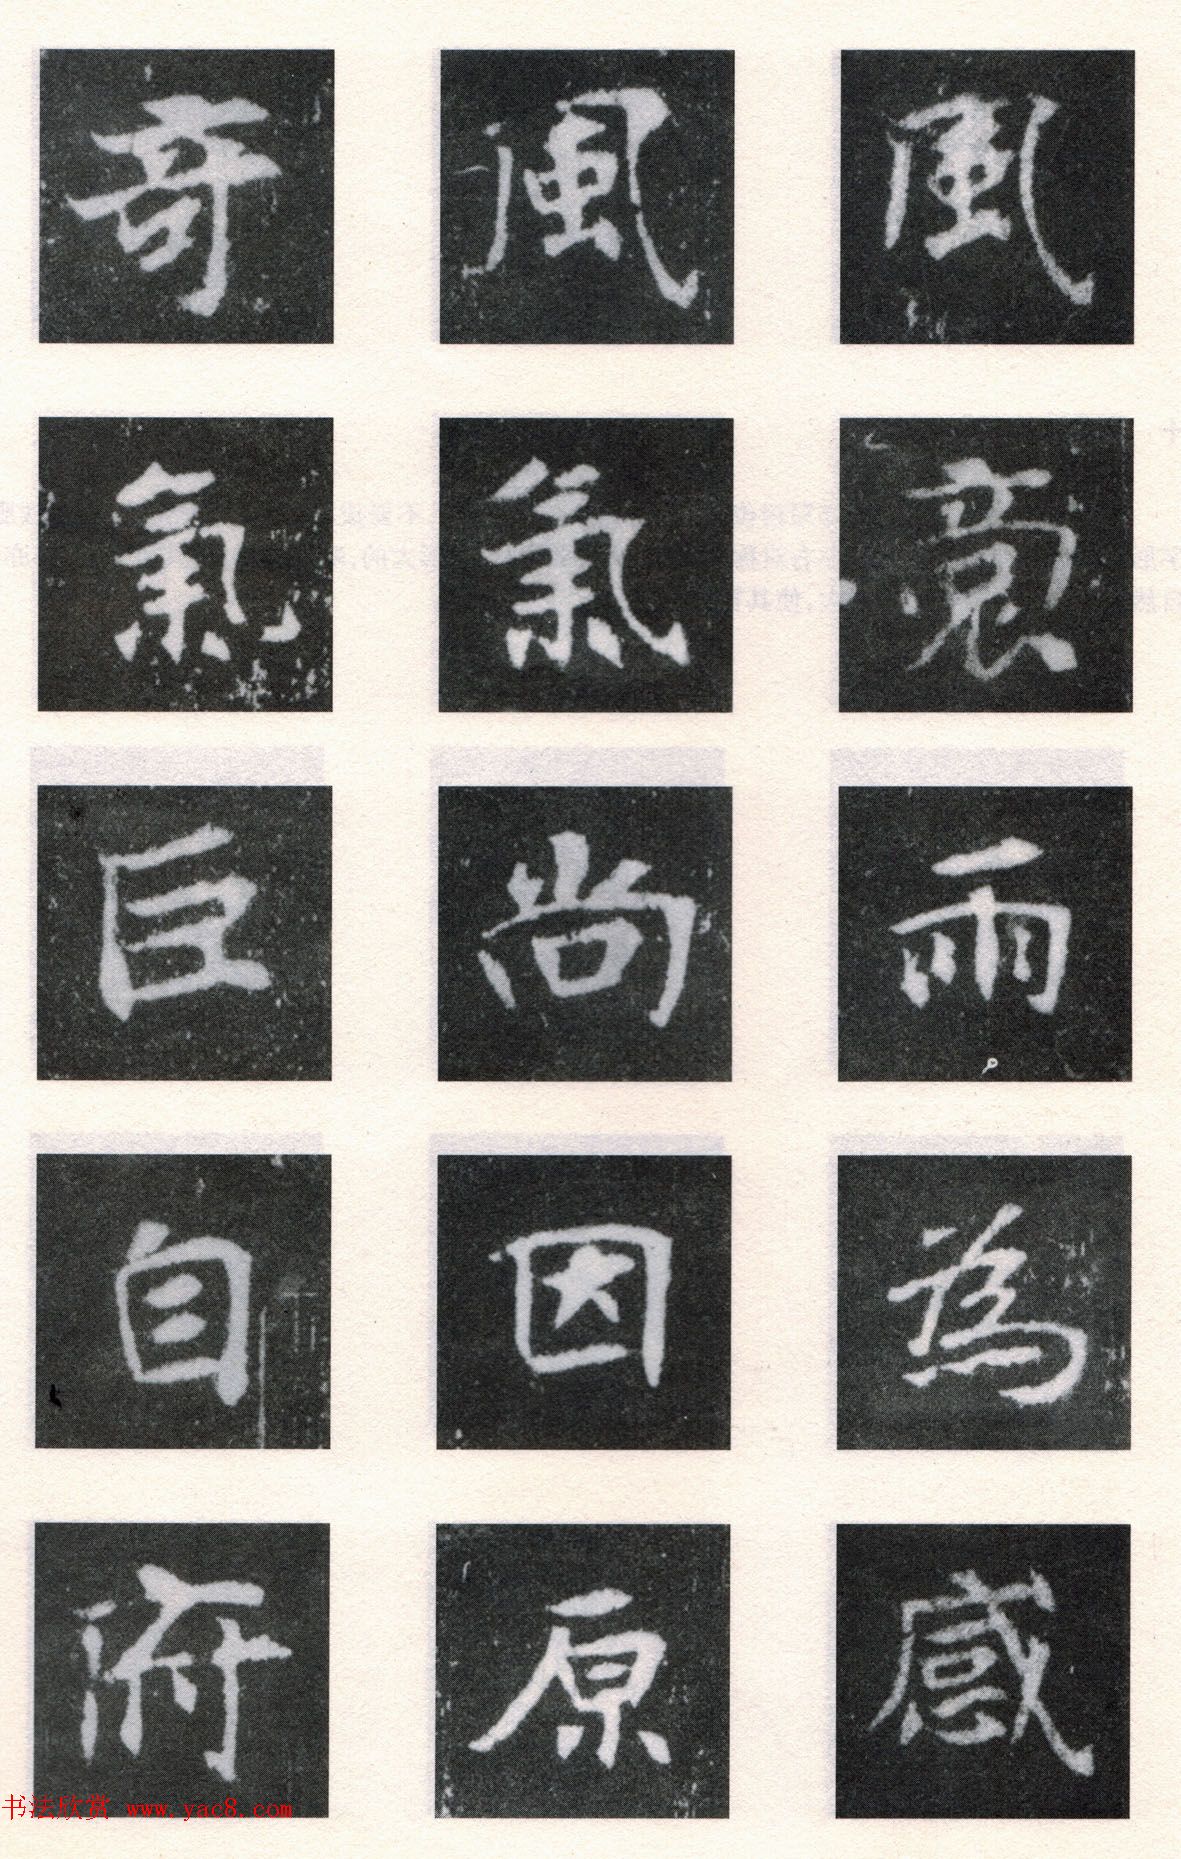 奇風風
氣氣裒
巨尚雨
自因為
府原感
书法欣赏 www.yac8.com